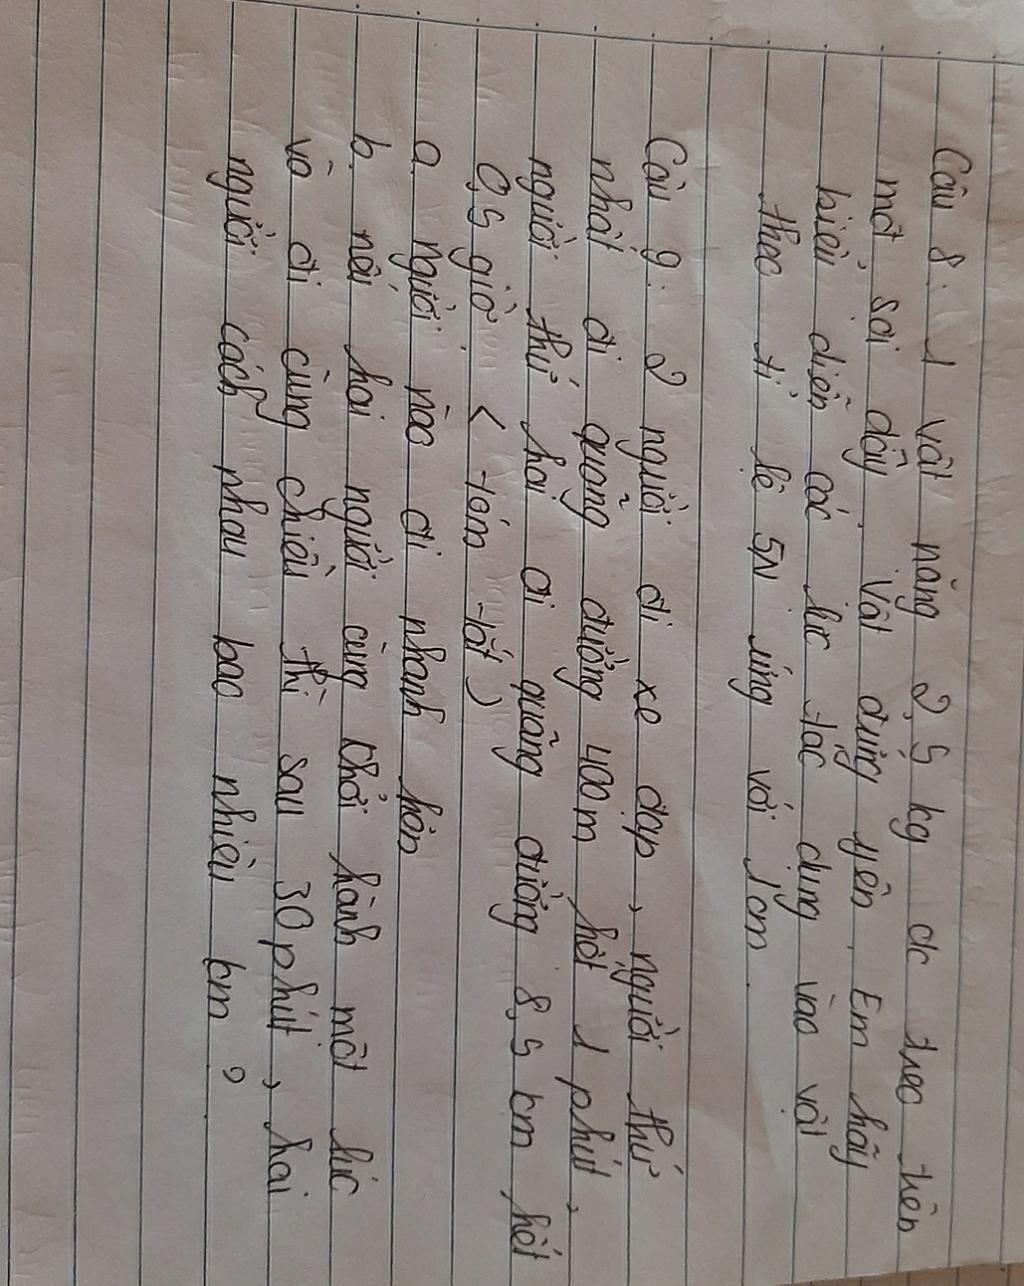 Câu 8: 1 vật nặng 2,5 kg đc treo trên
một sợi dây. Vật đứng yên. Em hãy
biểu diễn các lực tác dụng vào vật
theo tỉ lệ 5N ứng với 1cm.
Câu 9: 2 người đi xe đạp, người thứ
nhất đi quãng đường 400m hết 1 phút,
người thứ hai đi quãng đường 8,5 km hết
0,5 giờ. < tóm tắt )
a, người nào đi nhanh hơn
b, nếu hai người cùng khởi hành một lúc
và đi cùng chiều thì sau 30 phút, hai
người cách nhau bao nhiêu km ?